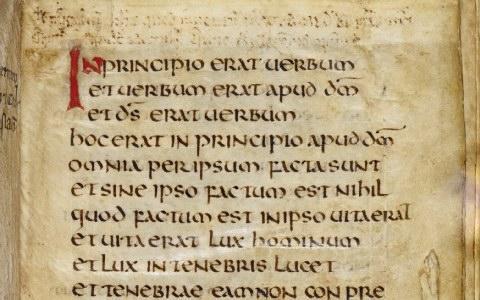 IN PRINCIPIO ERAT UERBUM
ET UERBUM ERAT APUD DM̅
ET DS̅ ERAT UERBUM
HOC ERAT IN PRINCIPIO APUD DM̅
OMNIA PER IPSUM FACTA SUNT
ET SINE IPSO FACTUM EST NIHIL
QUOD FACTUM EST IN IPSO UITA ERAT
ET UITA ERAT LUX HOMINUM
ET LUX IN TENEBRIS LUCET
ET TENEBRAE EAM NON CON PRE